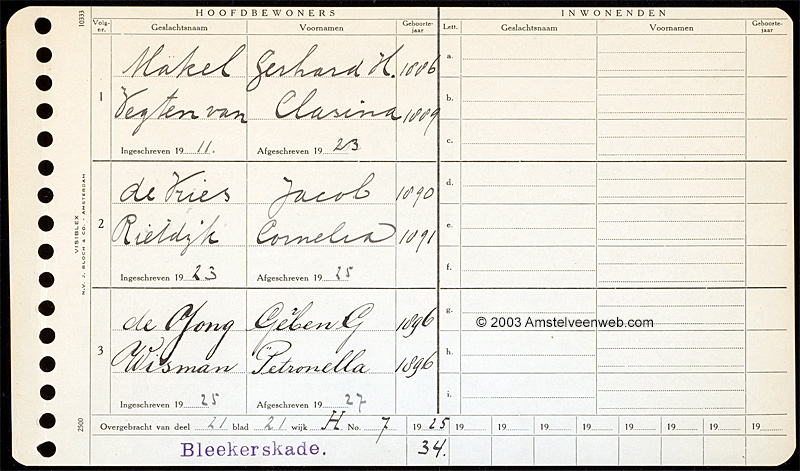 HOOFDBEWONERS INWONENDEN
10333 Volg-nr. Geslachtsnaam Voornamen Geboorte-jaar Lett. Geslachtsnaam Voornamen Geboorte-jaar
Mäkel Gerhard H. 1886 a.
1 Vegten van Clasina 1889 b.
Ingeschreven 19 11. Afgeschreven 19 23 c.
de Vries Jacob 1890 d.
2 Rietdijk Cornelia 1891 e.
Ingeschreven 19 23 Afgeschreven 19 25 f.
VISIBLEX
N.V. J. BLOCH & CO. - AMSTERDAM
de Jong Geben G 1896 g.
© 2003 Amstelveenweb.com
3 Wisman Petronella 1896 h.
Ingeschreven 19 25 Afgeschreven 19 27 i.
2500 Overgebracht van deel 21 blad 21 wijk H No. 7 19 25 19 19 19 19 19 19 19 19
Bleekerskade. 34.